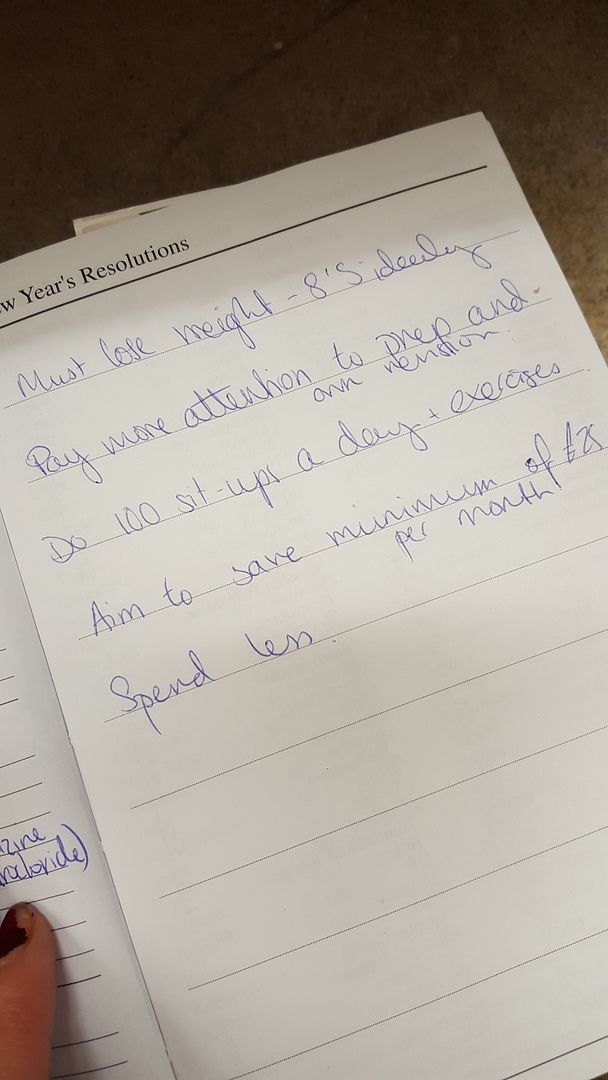 w Year's Resolutions
Must lose weight - 8'S ideally
Pay more attention to prep and
own revision.
Do 100 sit-ups a day + exercises.
Aim to save minimum of
per month
Spend less.
zine